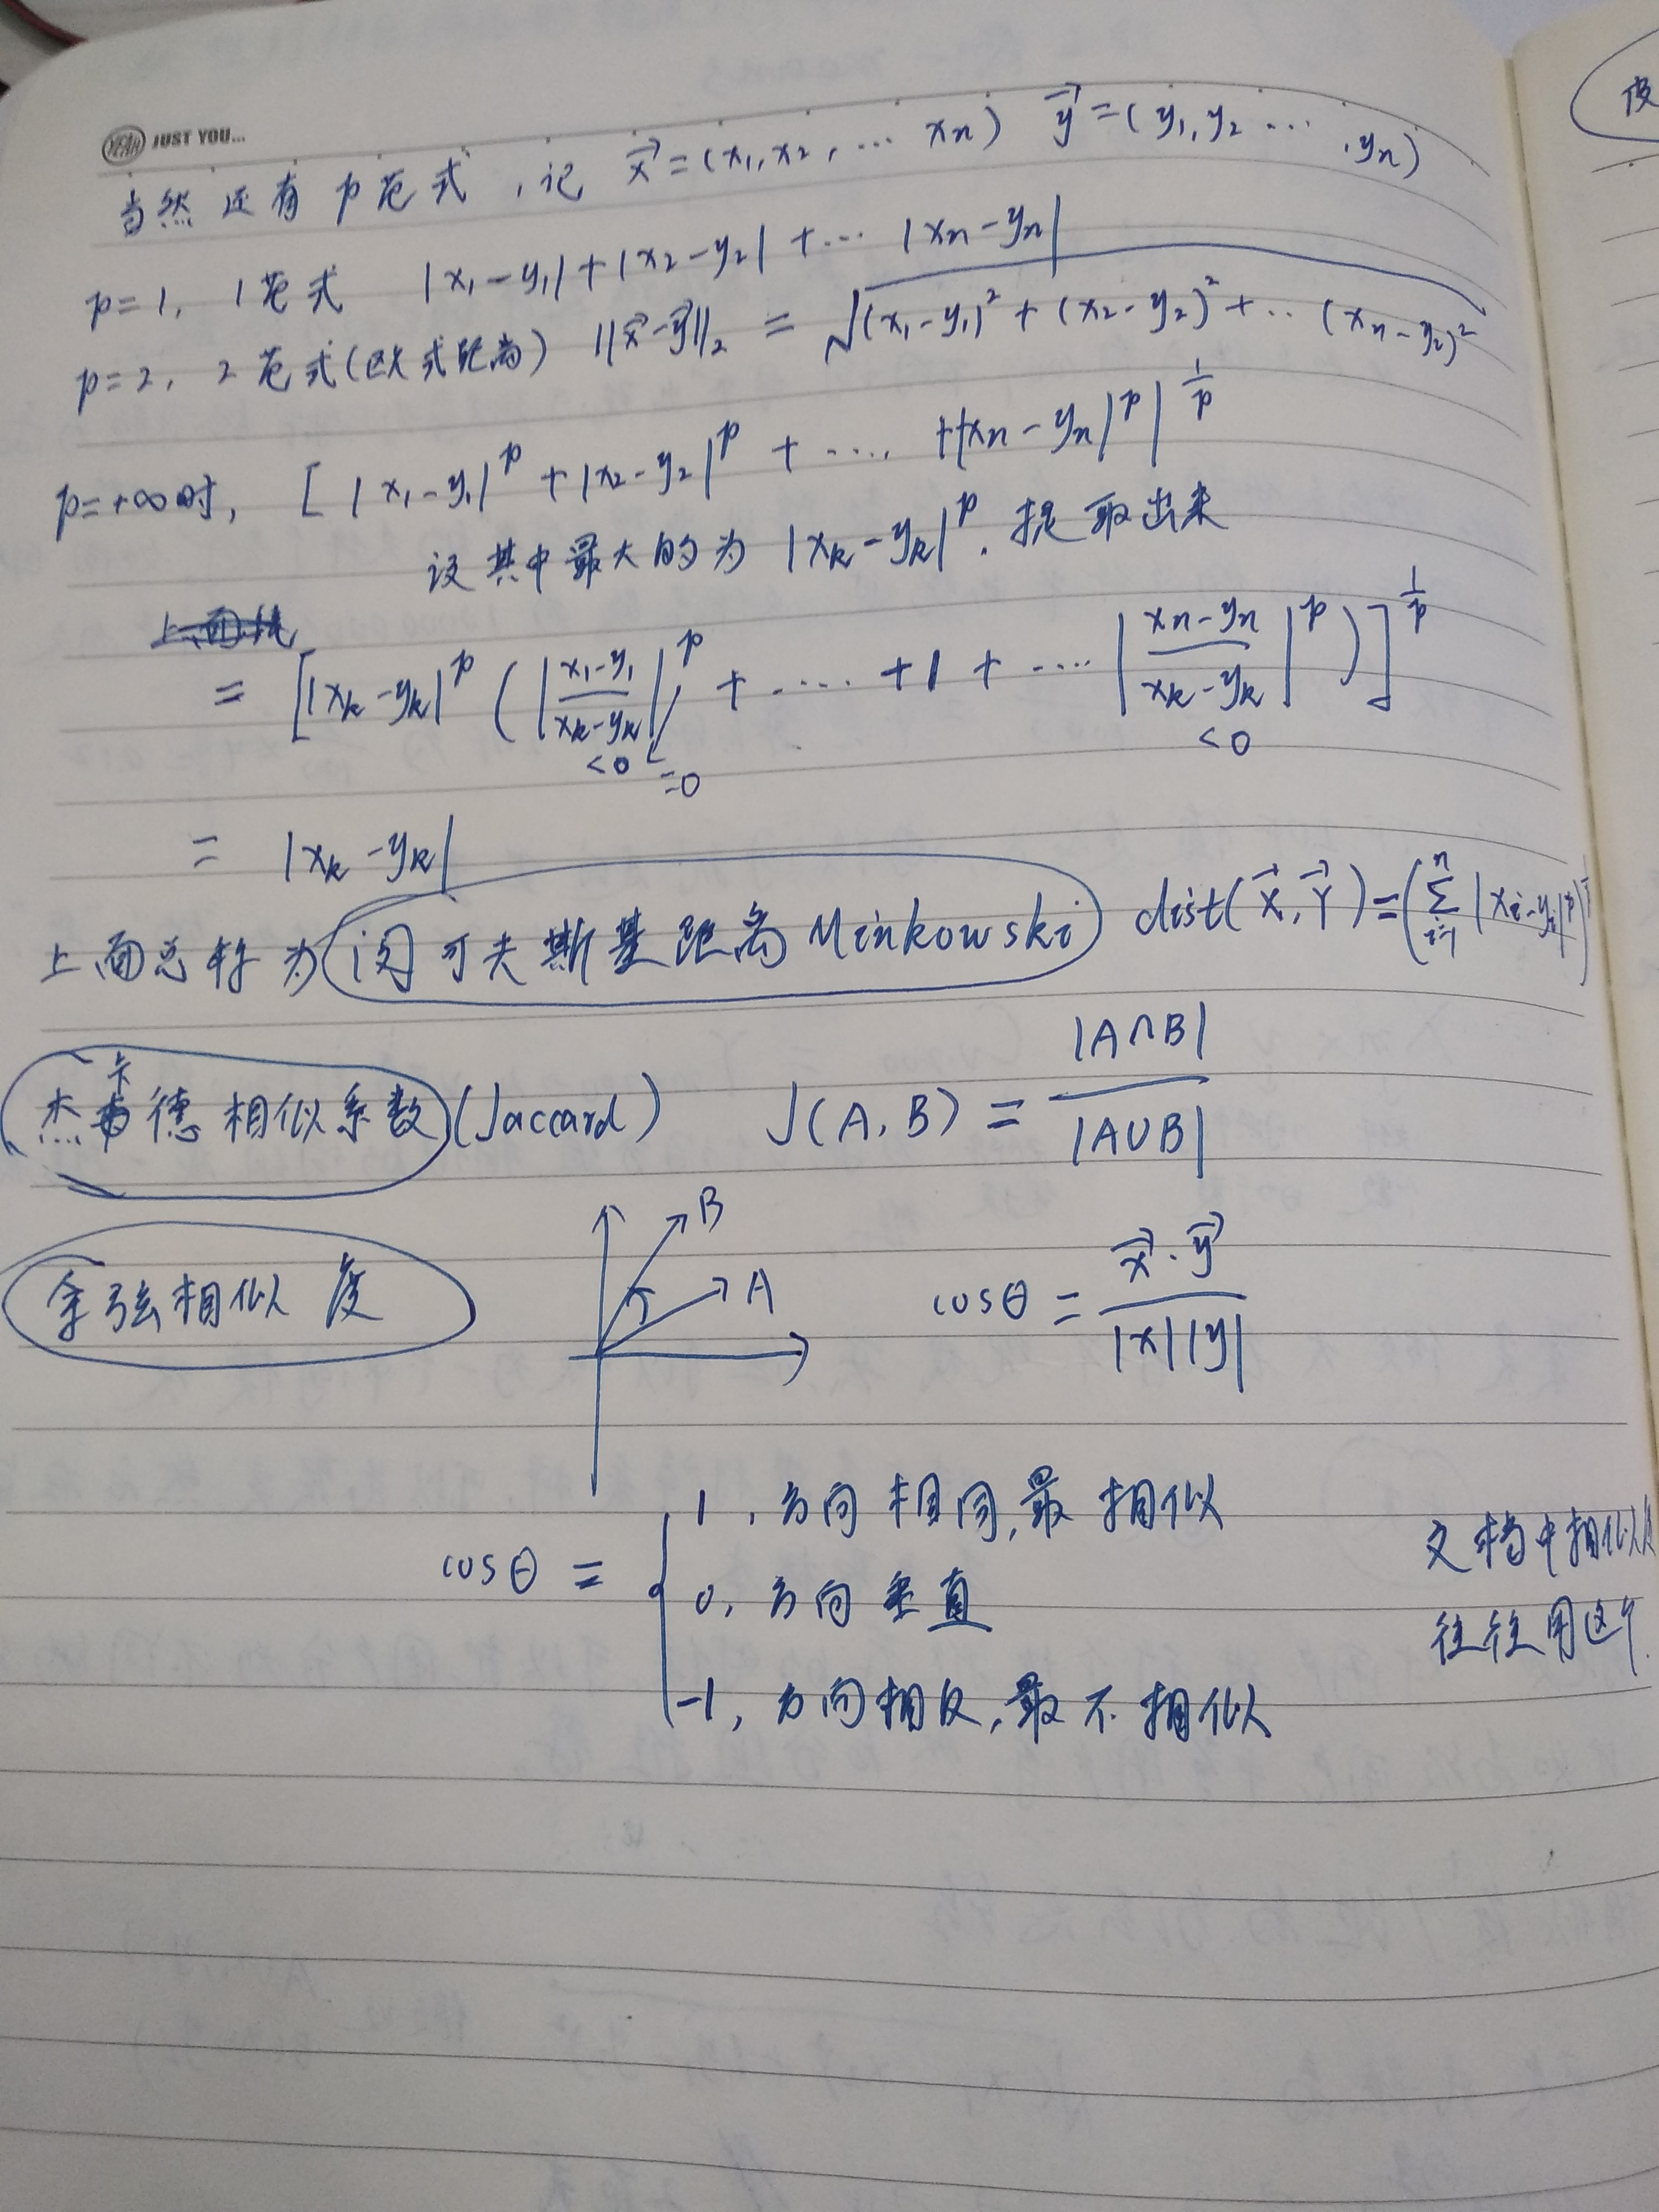 YEAH JUST YOU...
当然还有p范式，记 x⃗=(x₁,x₂,… xn) y⃗=(y₁,y₂ … ,yn)
p=1, 1范式 |x₁-y₁|+|x₂-y₂|+… |xn-yn|
p=2, 2范式(欧式距离) ||x⃗-y⃗||₂ = √(x₁-y₁)²+(x₂-y₂)²+‥(xn-y₂)²
p=+∞时, [|x₁-y₁|^p+|x₂-y₂|^p+…. +|xn-yn|^p|^(1/p)
设其中最大的为 |xk-yk|^p. 提取出来
= [|xk-yk|^p (|(x₁-y₁)/(xk-yk)|^p + ….. +1+ …. |(xn-yn)/(xk-yk)|^p)]^(1/p)
<0 =0 <0
= |xk-yk|
上面总称为闵可夫斯基距离Minkowski dist(X⃗,Y⃗)=(∑_(i=1)^n |xi-yi|^p)
杰卡德相似系数(Jaccard) J(A,B) = |A∩B| / |A∪B|
余弦相似度 B A cosθ = x⃗·y⃗ / |x||y|
cosθ = { 1,方向相同,最相似
0,方向垂直
-1,方向相反,最不相似
文档中相似
往往用这个.